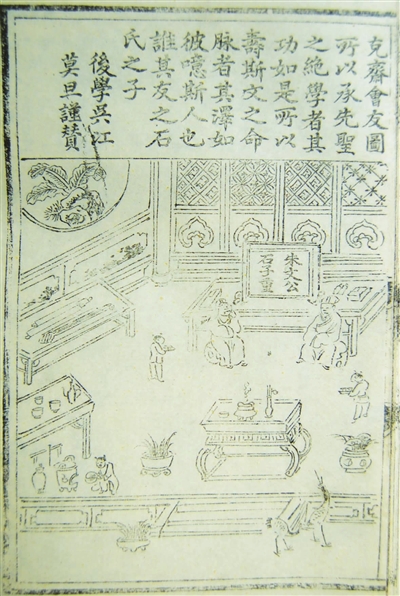 克齋會友圖
所以承先聖
之絶學者其
功如是所以
壽斯文之命
脉者其澤如
彼噫斯人也
誰其友之石
氏之子
後學吳江
莫旦謹贊
朱文公
石子重